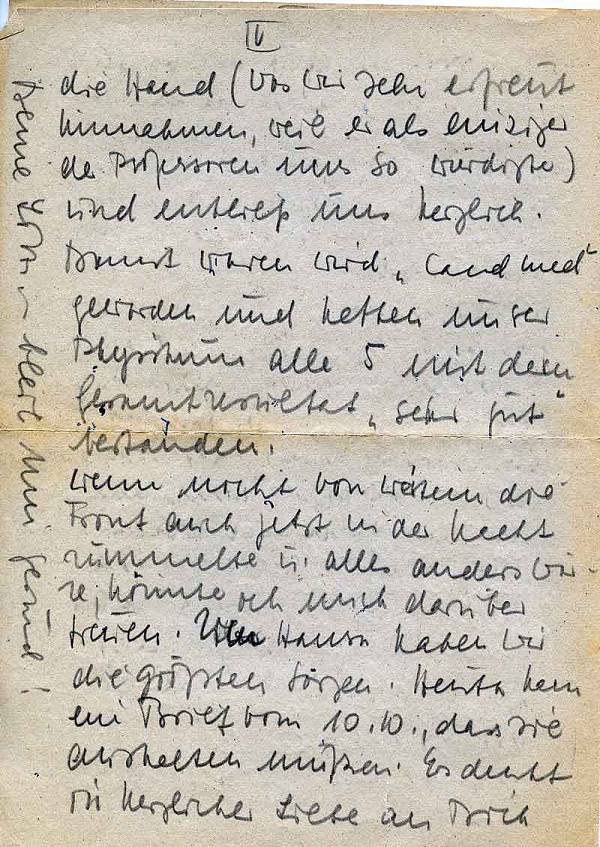 V
die Hand (was wir sehr erfreut
hinnahmen, weil er als einziger
der Professoren uns so würdigte)
und entließ uns herzlich.
Damit waren wird „Cand med"
geworden und hatten unser
Physikum alle 5 mit dem
Gesamtresultat „sehr gut"
bestanden.
Wenn nicht von weitem die
Front auch jetzt in der Nacht
rummelte u. alles anders wä-
re, könnte ich mich darüber
freuen. Um Hansu haben wir
die größten Sorgen. Heute kam
ein Brief vom 10.10., dass sie
aushalten müßen. Es denkt
in herzlicher Liebe an Dich
Deine bleib nun gesund!